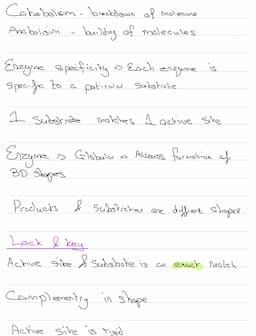 Catabolism - breakdown of molecules
Anabolism - building of molecules
Enzyme specificity → Each enzyme is
specific to a paticular substrate
1 Substrate matches 1 active site
Enzyme → Globular → Allows formation of
3D shapes
Products & substrates are different shapes.
Lock & key
Active site & substrate is an exact match
Complementry in shape
Active site is rigid